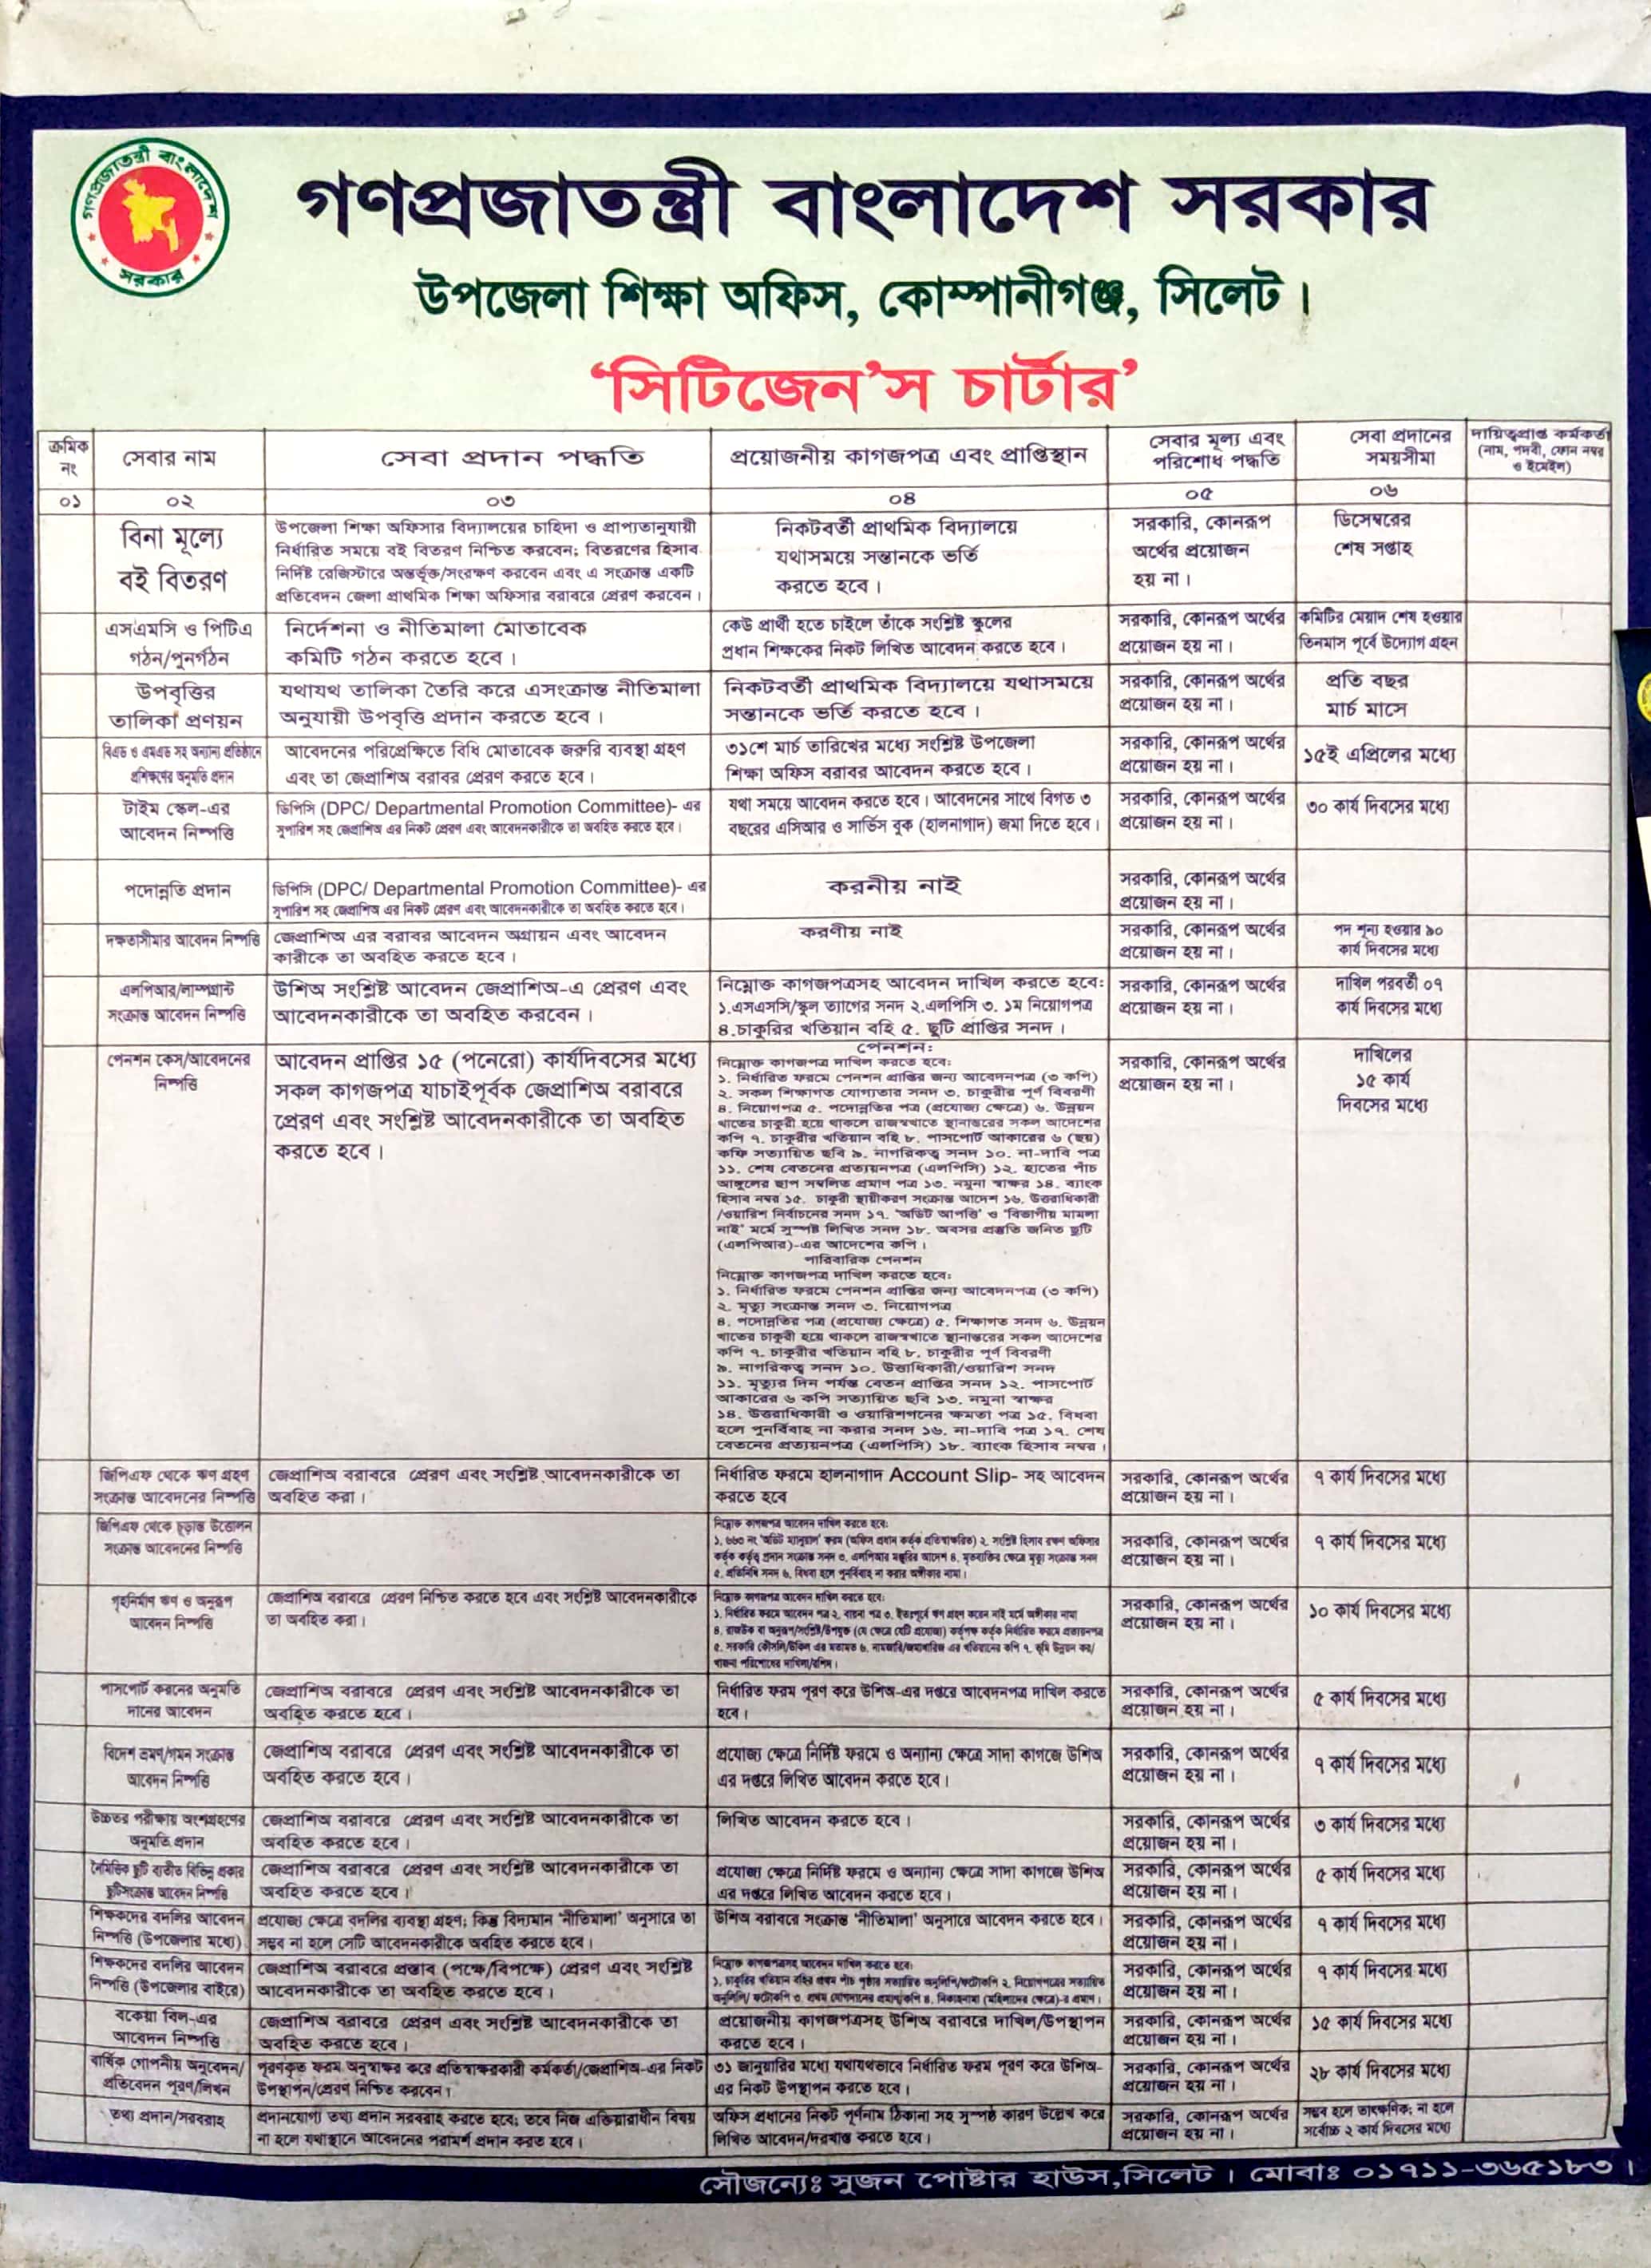 গণপ্রজাতন্ত্রী বাংলাদেশ
সরকার
গণপ্রজাতন্ত্রী বাংলাদেশ সরকার
উপজেলা শিক্ষা অফিস, কোম্পানীগঞ্জ, সিলেট।
‘সিটিজেন’স চার্টার’
ক্রমিক
নং
সেবার নাম
সেবা প্রদান পদ্ধতি
প্রয়োজনীয় কাগজপত্র এবং প্রাপ্তিস্থান
সেবার মূল্য এবং
পরিশোধ পদ্ধতি
সেবা প্রদানের
সময়সীমা
দায়িত্বপ্রাপ্ত কর্মকর্তা
(নাম, পদবী, ফোন নম্বর
ও ইমেইল)
০১
০২
০৩
০৪
০৫
০৬
বিনা মূল্যে
বই বিতরণ
উপজেলা শিক্ষা অফিসার বিদ্যালয়ের চাহিদা ও প্রাপ্যতানুযায়ী
নির্ধারিত সময়ে বই বিতরণ নিশ্চিত করবেন; বিতরণের হিসাব
নির্দিষ্ট রেজিস্টারে অন্তর্ভূক্ত/সংরক্ষণ করবেন এবং এ সংক্রান্ত একটি
প্রতিবেদন জেলা প্রাথমিক শিক্ষা অফিসার বরাবরে প্রেরণ করবেন।
নিকটবর্তী প্রাথমিক বিদ্যালয়ে
যথাসময়ে সন্তানকে ভর্তি
করতে হবে।
সরকারি, কোনরূপ
অর্থের প্রয়োজন
হয় না।
ডিসেম্বরের
শেষ সপ্তাহ
এসএমসি ও পিটিএ
গঠন/পুনর্গঠন
নির্দেশনা ও নীতিমালা মোতাবেক
কমিটি গঠন করতে হবে।
কেউ প্রার্থী হতে চাইলে তাঁকে সংশ্লিষ্ট স্কুলের
প্রধান শিক্ষকের নিকট লিখিত আবেদন করতে হবে।
সরকারি, কোনরূপ অর্থের
প্রয়োজন হয় না।
কমিটির মেয়াদ শেষ হওয়ার
তিনমাস পূর্বে উদ্যোগ গ্রহন
উপবৃত্তির
তালিকা প্রণয়ন
যথাযথ তালিকা তৈরি করে এসংক্রান্ত নীতিমালা
অনুযায়ী উপবৃত্তি প্রদান করতে হবে।
নিকটবর্তী প্রাথমিক বিদ্যালয়ে যথাসময়ে
সন্তানকে ভর্তি করতে হবে।
সরকারি, কোনরূপ অর্থের
প্রয়োজন হয় না।
প্রতি বছর
মার্চ মাসে
বিএড ও এমএড সহ অন্যান্য প্রতিষ্ঠানে
প্রশিক্ষণের অনুমতি প্রদান
আবেদনের পরিপ্রেক্ষিতে বিধি মোতাবেক জরুরি ব্যবস্থা গ্রহণ
এবং তা জেপ্রাশিঅ বরাবর প্রেরণ করতে হবে।
৩১শে মার্চ তারিখের মধ্যে সংশ্লিষ্ট উপজেলা
শিক্ষা অফিস বরাবর আবেদন করতে হবে।
সরকারি, কোনরূপ অর্থের
প্রয়োজন হয় না।
১৫ই এপ্রিলের মধ্যে
টাইম স্কেল-এর
আবেদন নিষ্পত্তি
ডিপিসি (DPC/ Departmental Promotion Committee)- এর
সুপারিশ সহ জেপ্রাশিঅ এর নিকট প্রেরণ এবং আবেদনকারীকে তা অবহিত করতে হবে।
যথা সময়ে আবেদন করতে হবে। আবেদনের সাথে বিগত ৩
বছরের এসিআর ও সার্ভিস বুক (হালনাগাদ) জমা দিতে হবে।
সরকারি, কোনরূপ অর্থের
প্রয়োজন হয় না।
৩০ কার্য দিবসের মধ্যে
পদোন্নতি প্রদান
ডিপিসি (DPC/ Departmental Promotion Committee)- এর
সুপারিশ সহ জেপ্রাশিঅ এর নিকট প্রেরণ এবং আবেদনকারীকে তা অবহিত করতে হবে।
করনীয় নাই
সরকারি, কোনরূপ অর্থের
প্রয়োজন হয় না।
দক্ষতাসীমার আবেদন নিষ্পত্তি
জেপ্রাশিঅ এর বরাবর আবেদন অগ্রায়ন এবং আবেদন
কারীকে তা অবহিত করতে হবে।
করণীয় নাই
সরকারি, কোনরূপ অর্থের
প্রয়োজন হয় না।
পদ শূন্য হওয়ার ৯০
কার্য দিবসের মধ্যে
এলপিআর/লাম্পগ্রান্ট
সংক্রান্ত আবেদন নিষ্পত্তি
উশিঅ সংশ্লিষ্ট আবেদন জেপ্রাশিঅ-এ প্রেরণ এবং
আবেদনকারীকে তা অবহিত করবেন।
নিম্নোক্ত কাগজপত্রসহ আবেদন দাখিল করতে হবে:
১.এসএসসি/স্কুল ত্যাগের সনদ ২.এলপিসি ৩. ১ম নিয়োগপত্র
৪.চাকুরির খতিয়ান বহি ৫. ছুটি প্রাপ্তির সনদ।
সরকারি, কোনরূপ অর্থের
প্রয়োজন হয় না।
দাখিল পরবর্তী ০৭
কার্য দিবসের মধ্যে
পেনশন কেস/আবেদনের
নিষ্পত্তি
আবেদন প্রাপ্তির ১৫ (পনেরো) কার্যদিবসের মধ্যে
সকল কাগজপত্র যাচাইপূর্বক জেপ্রাশিঅ বরাবরে
প্রেরণ এবং সংশ্লিষ্ট আবেদনকারীকে তা অবহিত
করতে হবে।
পেনশন:
নিম্নোক্ত কাগজপত্র দাখিল করতে হবে:
১. নির্ধারিত ফরমে পেনশন প্রাপ্তির জন্য আবেদনপত্র (৩ কপি)
২. সকল শিক্ষাগত যোগ্যতার সনদ ৩. চাকুরীর পূর্ণ বিবরণী
৪. নিয়োগপত্র ৫. পদোন্নতির পত্র (প্রযোজ্য ক্ষেত্রে) ৬. উন্নয়ন
খাতের চাকুরী হয়ে থাকলে রাজস্বখাতে স্থানান্তরের সকল আদেশের
কপি ৭. চাকুরীর খতিয়ান বহি ৮. পাসপোর্ট আকারের ৬ (ছয়)
কফি সত্যায়িত ছবি ৯. নাগরিকত্ব সনদ ১০. না-দাবি পত্র
১১. শেষ বেতনের প্রত্যয়নপত্র (এলপিসি) ১২. হাতের পাঁচ
আঙ্গুলের ছাপ সম্বলিত প্রমাণ পত্র ১৩. নমুনা স্বাক্ষর ১৪. ব্যাংক
হিসাব নম্বর ১৫. চাকুরী স্থায়ীকরণ সংক্রান্ত আদেশ ১৬. উত্তরাধিকারী
/ওয়ারিশ নির্বাচনের সনদ ১৭. ‘অডিট আপত্তি’ ও ‘বিভাগীয় মামলা
নাই’ মর্মে সুস্পষ্ট লিখিত সনদ ১৮. অবসর প্রস্তুতি জনিত ছুটি
(এলপিআর)-এর আদেশের কপি।
পারিবারিক পেনশন
নিম্নোক্ত কাগজপত্র দাখিল করতে হবে:
১. নির্ধারিত ফরমে পেনশন প্রাপ্তির জন্য আবেদনপত্র (৩ কপি)
২. মৃত্যু সংক্রান্ত সনদ ৩. নিয়োগপত্র
৪. পদোন্নতির পত্র (প্রযোজ্য ক্ষেত্রে) ৫. শিক্ষাগত সনদ ৬. উন্নয়ন
খাতের চাকুরী হয়ে থাকলে রাজস্বখাতে স্থানান্তরের সকল আদেশের
কপি ৭. চাকুরীর খতিয়ান বহি ৮. চাকুরীর পূর্ণ বিবরণী
৯. নাগরিকত্ব সনদ ১০. উত্তাধিকারী/ওয়ারিশ সনদ
১১. মৃত্যুর দিন পর্যন্ত বেতন প্রাপ্তির সনদ ১২. পাসপোর্ট
আকারের ৬ কপি সত্যায়িত ছবি ১৩. নমুনা স্বাক্ষর
১৪. উত্তরাধিকারী ও ওয়ারিশগনের ক্ষমতা পত্র ১৫. বিধবা
হলে পুনর্বিবাহ না করার সনদ ১৬. না-দাবি পত্র ১৭. শেষ
বেতনের প্রত্যয়নপত্র (এলপিসি) ১৮. ব্যাংক হিসাব নম্বর।
সরকারি, কোনরূপ অর্থের
প্রয়োজন হয় না।
দাখিলের
১৫ কার্য
দিবসের মধ্যে
জিপিএফ থেকে ঋণ গ্রহণ
সংক্রান্ত আবেদনের নিষ্পত্তি
জেপ্রাশিঅ বরাবরে প্রেরণ এবং সংশ্লিষ্ট আবেদনকারীকে তা
অবহিত করা।
নির্ধারিত ফরমে হালনাগাদ Account Slip- সহ আবেদন
করতে হবে
সরকারি, কোনরূপ অর্থের
প্রয়োজন হয় না।
৭ কার্য দিবসের মধ্যে
জিপিএফ থেকে চূড়ান্ত উত্তোলন
সংক্রান্ত আবেদনের নিষ্পত্তি
নিম্নোক্ত কাগজপত্র আবেদন দাখিল করতে হবে:
১. ৬৬৩ নং ‘অডিট ম্যানুয়াল’ ফরম (অফিস প্রধান কর্তৃক প্রতিস্বাক্ষরিত) ২. সংশ্লিষ্ট হিসাব রক্ষণ অফিসার
কর্তৃক কর্তৃত্ব প্রদান সংক্রান্ত সনদ ৩. এলপিআর মঞ্জুরির আদেশ ৪. মৃতব্যক্তির ক্ষেত্রে মৃত্যু সংক্রান্ত সনদ
৫. প্রতিনিধি সনদ ৬. বিধবা হলে পুনর্বিবাহ না করার অঙ্গীকার নামা।
সরকারি, কোনরূপ অর্থের
প্রয়োজন হয় না।
৭ কার্য দিবসের মধ্যে
গৃহনির্মাণ ঋণ ও অনুরূপ
আবেদন নিষ্পত্তি
জেপ্রাশিঅ বরাবরে প্রেরণ নিশ্চিত করতে হবে এবং সংশ্লিষ্ট আবেদনকারীকে
তা অবহিত করা।
নিম্নোক্ত কাগজপত্র আবেদন দাখিল করতে হবে:
১. নির্ধারিত ফরমে আবেদন পত্র ২. বায়না পত্র ৩. ইতঃপূর্বে ঋণ গ্রহণ করেন নাই মর্মে অঙ্গীকার নামা
৪. রাজউক বা অনুরূপ/সংশ্লিষ্ট/উপযুক্ত (যে ক্ষেত্রে যেটি প্রযোজ্য) কর্তৃপক্ষ কর্তৃক নির্ধারিত ফরমে প্রত্যয়নপত্র
৫. সরকারি কৌসলি/উকিল এর মতামত ৬. নামজারি/জমাখারিজ এর খতিয়ানের কপি ৭. ভূমি উন্নয়ন কর/
খাজনা পরিশোধের দাখিলা/রশিদ।
সরকারি, কোনরূপ অর্থের
প্রয়োজন হয় না।
১০ কার্য দিবসের মধ্যে
পাসপোর্ট করনের অনুমতি
দানের আবেদন
জেপ্রাশিঅ বরাবরে প্রেরণ এবং সংশ্লিষ্ট আবেদনকারীকে তা
অবহিত করতে হবে।
নির্ধারিত ফরম পূরণ করে উশিঅ-এর দপ্তরে আবেদনপত্র দাখিল করতে
হবে।
সরকারি, কোনরূপ অর্থের
প্রয়োজন হয় না।
৫ কার্য দিবসের মধ্যে
বিদেশ ভ্রমণ/গমন সংক্রান্ত
আবেদন নিষ্পত্তি
জেপ্রাশিঅ বরাবরে প্রেরণ এবং সংশ্লিষ্ট আবেদনকারীকে তা
অবহিত করতে হবে।
প্রযোজ্য ক্ষেত্রে নির্দিষ্ট ফরমে ও অন্যান্য ক্ষেত্রে সাদা কাগজে উশিঅ
এর দপ্তরে লিখিত আবেদন করতে হবে।
সরকারি, কোনরূপ অর্থের
প্রয়োজন হয় না।
৭ কার্য দিবসের মধ্যে
উচ্চতর পরীক্ষায় অংশগ্রহণের
অনুমতি প্রদান
জেপ্রাশিঅ বরাবরে প্রেরণ এবং সংশ্লিষ্ট আবেদনকারীকে তা
অবহিত করতে হবে।
লিখিত আবেদন করতে হবে।
সরকারি, কোনরূপ অর্থের
প্রয়োজন হয় না।
৩ কার্য দিবসের মধ্যে
নৈমিত্তিক ছুটি ব্যতীত বিভিন্ন প্রকার
ছুটিসংক্রান্ত আবেদন নিষ্পত্তি
জেপ্রাশিঅ বরাবরে প্রেরণ এবং সংশ্লিষ্ট আবেদনকারীকে তা
অবহিত করতে হবে।
প্রযোজ্য ক্ষেত্রে নির্দিষ্ট ফরমে ও অন্যান্য ক্ষেত্রে সাদা কাগজে উশিঅ
এর দপ্তরে লিখিত আবেদন করতে হবে।
সরকারি, কোনরূপ অর্থের
প্রয়োজন হয় না।
৫ কার্য দিবসের মধ্যে
শিক্ষকদের বদলির আবেদন
নিষ্পত্তি (উপজেলার মধ্যে)
প্রযোজ্য ক্ষেত্রে বদলির ব্যবস্থা গ্রহণ; কিন্তু বিদ্যমান ‘নীতিমালা’ অনুসারে তা
সম্ভব না হলে সেটি আবেদনকারীকে অবহিত করতে হবে।
উশিঅ বরাবরে সংক্রান্ত ‘নীতিমালা’ অনুসারে আবেদন করতে হবে।
সরকারি, কোনরূপ অর্থের
প্রয়োজন হয় না।
৭ কার্য দিবসের মধ্যে
শিক্ষকদের বদলির আবেদন
নিষ্পত্তি (উপজেলার বাইরে)
জেপ্রাশিঅ বরাবরে প্রস্তাব (পক্ষে/বিপক্ষে) প্রেরণ এবং সংশ্লিষ্ট
আবেদনকারীকে তা অবহিত করতে হবে।
নিম্নোক্ত কাগজপত্রসহ আবেদন দাখিল করতে হবে:
১. চাকুরির খতিয়ান বহির প্রথম পাঁচ পৃষ্ঠার সত্যায়িত অনুলিপি/ফটোকপি ২. নিয়োগপত্রের সত্যায়িত
অনুলিপি/ ফটোকপি ৩. প্রথম যোগদানের প্রমাণ/কপি ৪. নিকাহনামা (মহিলাদের ক্ষেত্রে)-র প্রমাণ।
সরকারি, কোনরূপ অর্থের
প্রয়োজন হয় না।
৭ কার্য দিবসের মধ্যে
বকেয়া বিল-এর
আবেদন নিষ্পত্তি
জেপ্রাশিঅ বরাবরে প্রেরণ এবং সংশ্লিষ্ট আবেদনকারীকে তা
অবহিত করতে হবে।
প্রয়োজনীয় কাগজপত্রসহ উশিঅ বরাবরে দাখিল/উপস্থাপন
করতে হবে।
সরকারি, কোনরূপ অর্থের
প্রয়োজন হয় না।
১৫ কার্য দিবসের মধ্যে
বার্ষিক গোপনীয় অনুবেদন/
প্রতিবেদন পূরণ/লিখন
পূরণকৃত ফরম অনুস্বাক্ষর করে প্রতিস্বাক্ষরকারী কর্মকর্তা/জেপ্রাশিঅ-এর নিকট
উপস্থাপন/প্রেরণ নিশ্চিত করবেন।
৩১ জানুয়ারির মধ্যে যথাযথভাবে নির্ধারিত ফরম পূরণ করে উশিঅ-
এর নিকট উপস্থাপন করতে হবে।
সরকারি, কোনরূপ অর্থের
প্রয়োজন হয় না।
২৮ কার্য দিবসের মধ্যে
তথ্য প্রদান/সরবরাহ
প্রদানযোগ্য তথ্য প্রদান সরবরাহ করতে হবে; তবে নিজ এক্তিয়ারাধীন বিষয়
না হলে যথাস্থানে আবেদনের পরামর্শ প্রদান করত হবে।
অফিস প্রধানের নিকট পূর্ণনাম ঠিকানা সহ সুস্পষ্ঠ কারণ উল্লেখ করে
লিখিত আবেদন/দরখাস্ত করতে হবে।
সরকারি, কোনরূপ অর্থের
প্রয়োজন হয় না।
সম্ভব হলে তাৎক্ষণিক; না হলে
সর্বোচ্চ ২ কার্য দিবসের মধ্যে
সৌজন্যেঃ সুজন পোষ্টার হাউস,সিলেট। মোবাঃ ০১৭১১-৩৬৫১৮৩।